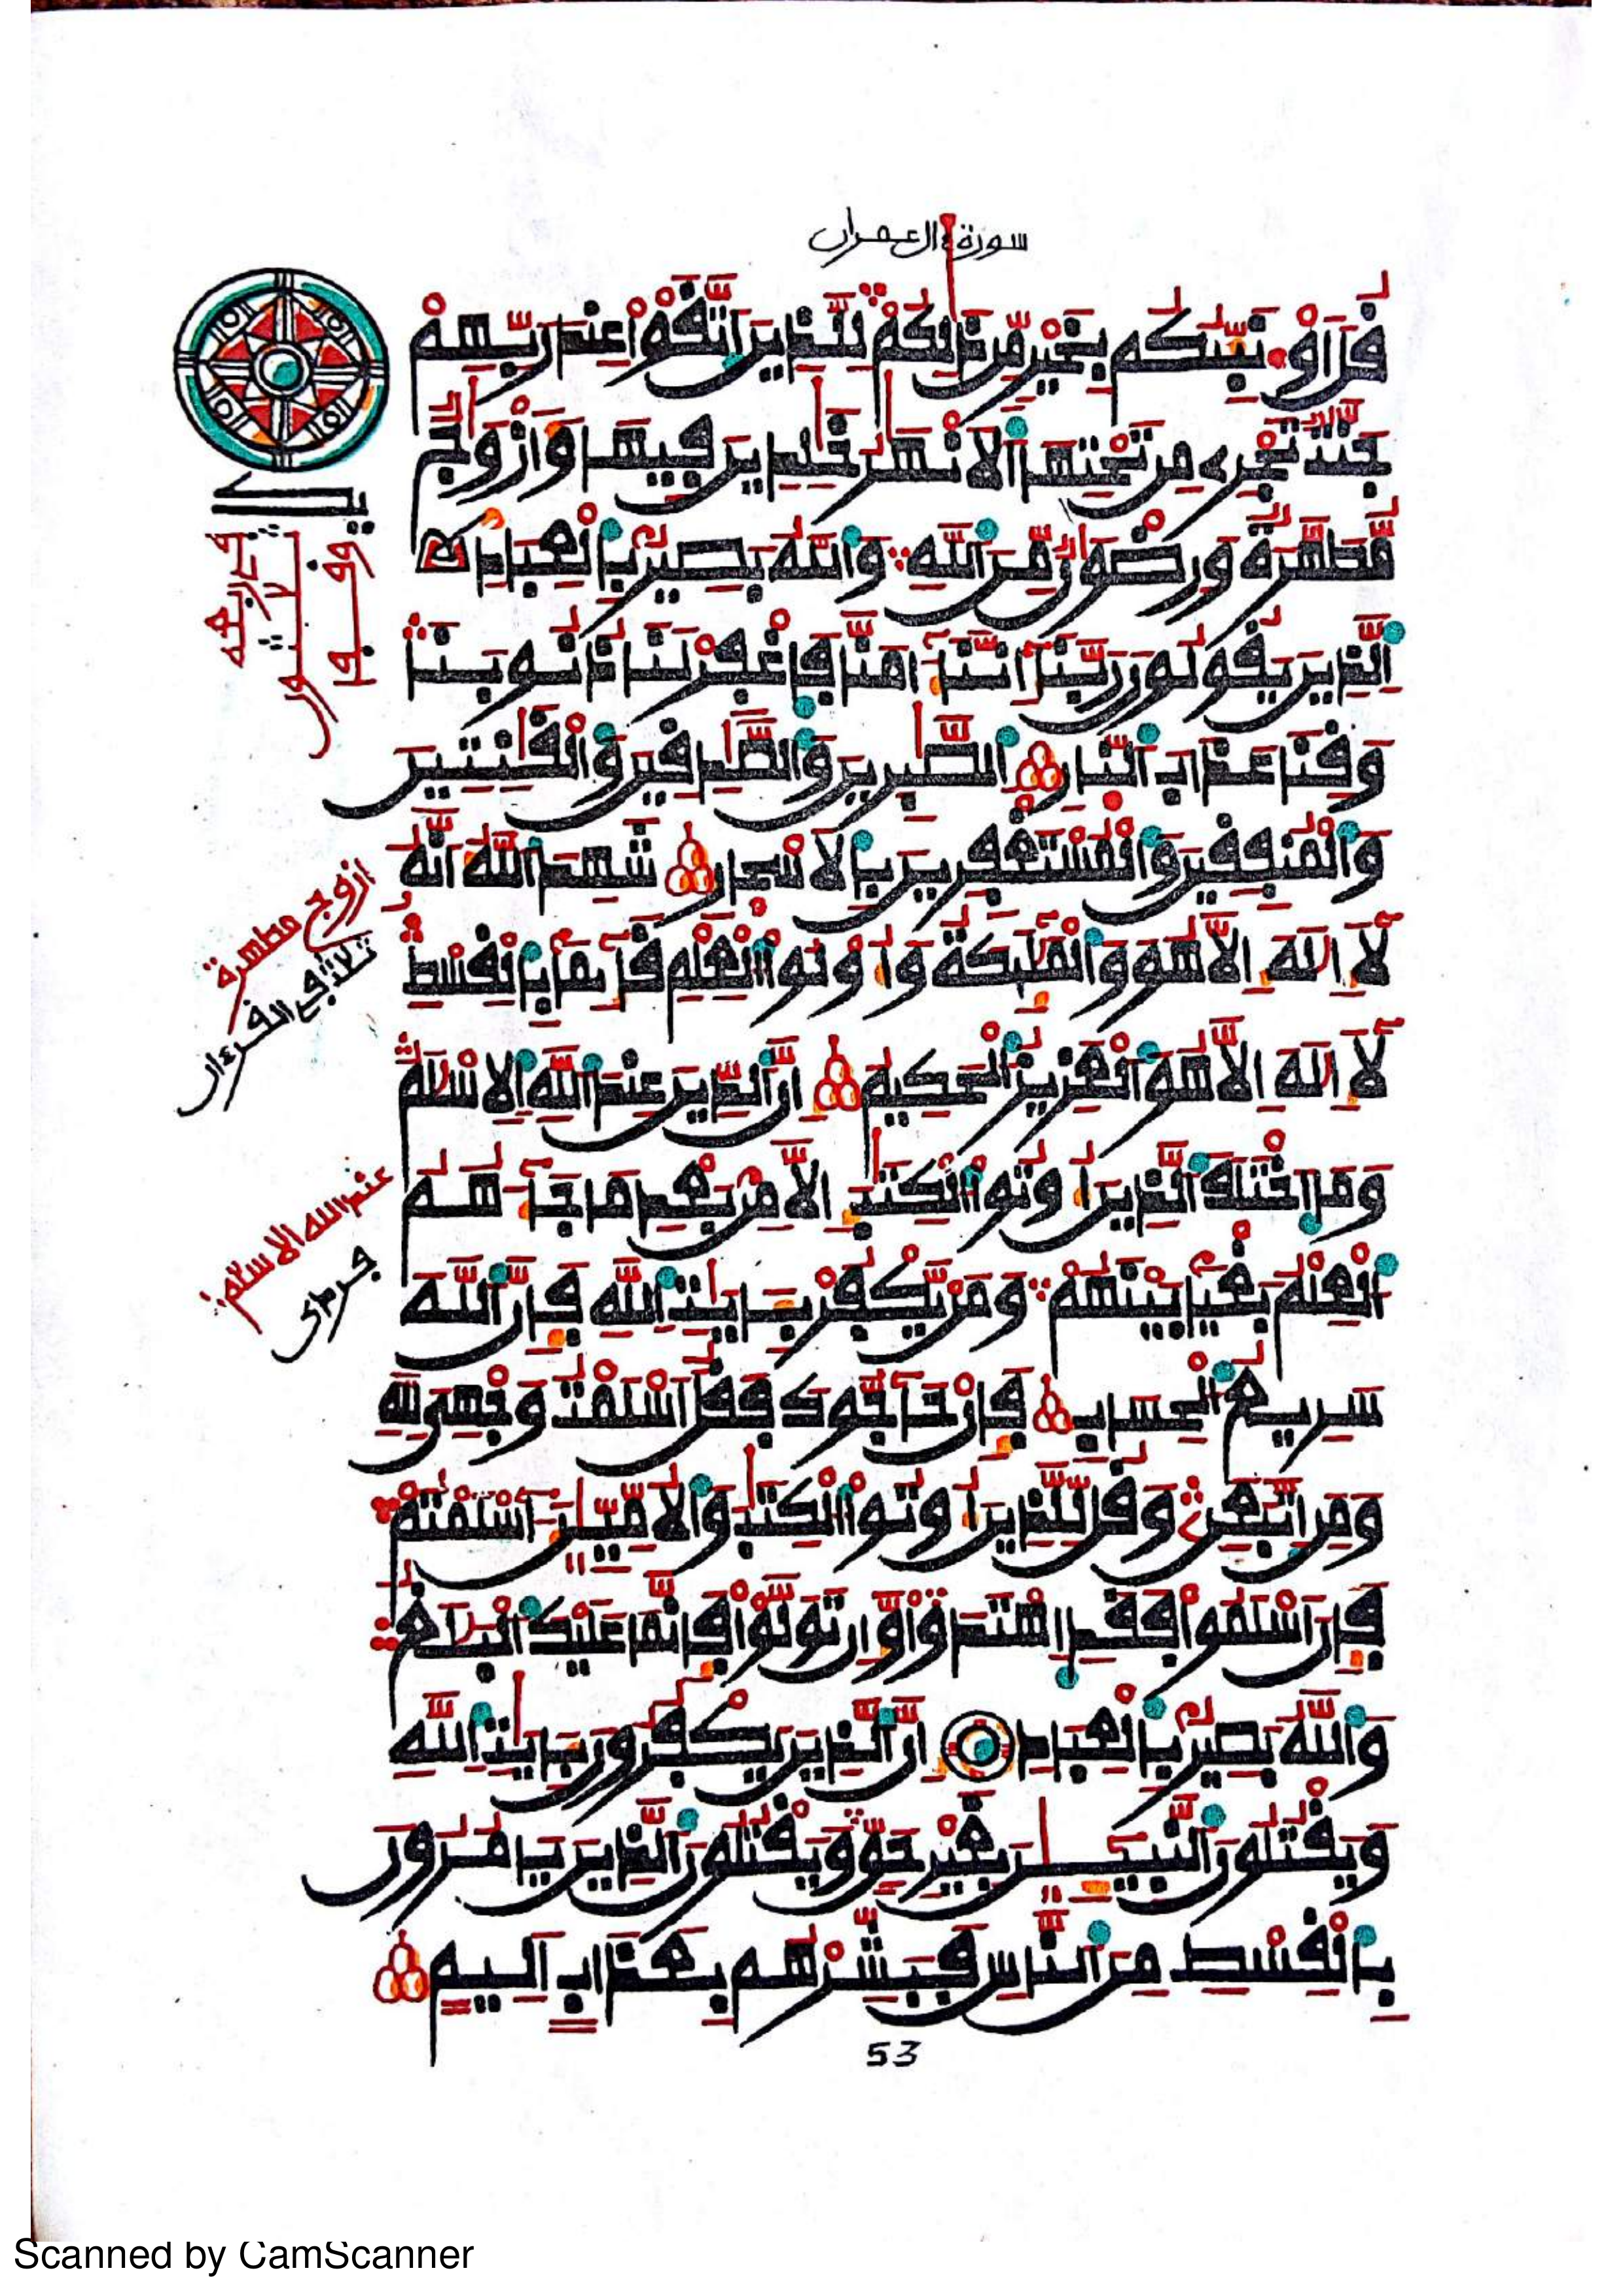 سورة ءال عمران
قُلَ اَو۟نَبِّئُكُم بِخَيْرٍ مِّن ذَٰلِكُمْ لِلَّذِينَ اَتَّقَوْاْ عِندَ رَبِّهِمْ
جَنَّٰتٌ تَجْرِے مِن تَحْتِهَا اَلَانْهَٰرُ خَٰلِدِينَ فِيهَا وَأَزْوَٰجٌ
مُّطَهَّرَةٌ وَرِضْوَٰنٌ مِّنَ اَللَّهِ وَاللَّهُ بَصِيرٌ بِالْعِبَادِ
اِلذِينَ يَقُولُونَ رَبَّنَا إِنَّنَا ءَامَنَّا فَاغْفِرْ لَنَا ذُنُوبَنَا
وَقِنَا عَذَابَ اَلنَّارِ اِلصَّٰبِرِينَ وَالصَّٰدِقِينَ وَالْقَٰنِتِينَ
وَالْمُنفِقِينَ وَالْمُسْتَغْفِرِينَ بِالَاسْحَارِ شَهِدَ اَللَّهُ أَنَّهُ
لَا إِلَٰهَ إِلَّا هُوَ وَالْمَلَٰئِكَةُ وَأُوْلُواْ اَلْعِلْمِ قَائِمًا بِالْقِسْطِ
لَا إِلَٰهَ إِلَّا هُوَ اَلْعَزِيزُ اَلْحَكِيمُ إِنَّ اَلدِّينَ عِندَ اَللَّهِ اِلِاسْلَٰمُ
وَمَا اَخْتَلَفَ اَلذِينَ أُوتُواْ اَلْكِتَٰبَ إِلَّا مِنۢ بَعْدِ مَا جَاءَهُمُ
اَلْعِلْمُ بَغْيًا بَيْنَهُمْ وَمَنْ يَّكْفُرْ بِـَٔايَٰتِ اِللَّهِ فَإِنَّ اَللَّهَ
سَرِيعُ اَلْحِسَابِ فَإِنْ حَاجُّوكَ فَقُلَ اَسْلَمْتُ وَجْهِيَ لِلهِ
وَمَنِ اِتَّبَعَنِ وَقُل لِّلذِينَ أُوتُواْ اَلْكِتَٰبَ وَالُامِّيِّـۧنَ ءَآسْلَمْتُمْ
فَإِنَ اَسْلَمُواْ فَقَدِ اِهْتَدَواْ وَّإِن تَوَلَّوْاْ فَإِنَّمَا عَلَيْكَ اَلْبَلَٰغُ
وَاللَّهُ بَصِيرٌ بِالْعِبَادِ إِنَّ اَلذِينَ يَكْفُرُونَ بِـَٔايَٰتِ اِللَّهِ
وَيَقْتُلُونَ اَلنَّبِيٓـِٕۧنَ بِغَيْرِ حَقٍّ وَيَقْتُلُونَ اَلذِينَ يَامُرُونَ
بِالْقِسْطِ مِنَ اَلنَّاسِ فَبَشِّرْهُم بِعَذَابٍ اَلِيمٍ
يك
ازوج مطهرة
ثلاثة في القرءان
عند الله الاسلم
53
Scanned by CamScanner